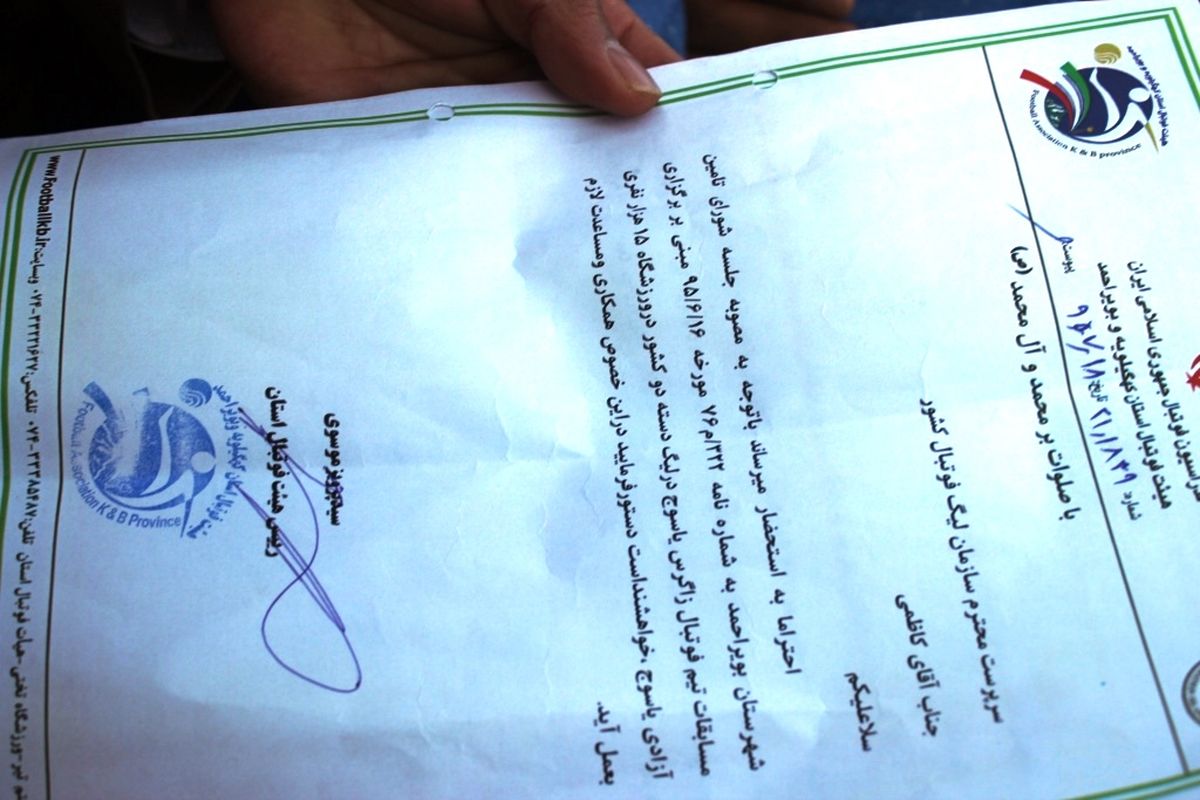 فدراسیون فوتبال جمهوری اسلامی ایران
هیئت فوتبال استان کهگیلویه و بویراحمد
هیئت فوتبال استان کهگیلویه و بویراحمد
Football Association K & B province
شماره: ۲۱/۸۳۹
تاریخ:
پیوست:
با صلوات بر محمد و آل محمد (ص)
سرپرست محترم سازمان لیگ فوتبال کشور
جناب آقای کاظمی
سلاعلیکم
احتراما به استحضار میرساند باتوجه به مصوبه جلسه شورای تامین
شهرستان بویراحمد به شماره نامه ۳۲۲/م/۷۶ مورخه ۹۵/۶/۱۶ مبنی بر برگزاری
مسابقات تیم فوتبال زاگرس یاسوج درلیگ دسته دو کشور درورزشگاه ۱۵ هزار نفری
آزادی یاسوج ،خواهشنداست دستورفرمایید دراین خصوص همکاری ومساعدت لازم
بعمل آید.
سیدپرویز موسوی
رییس هیئت فوتبال استان
Football Association K & B Province
تیر-ورزشگاه تختی-هیات فوتبال استان تلفن: ۳۳۳۸۵۴۸۷-۰۷۴ تلفکس: ۳۳۲۲۱۶۲۷-۰۷۴ وبسایت: www.Footballkb.ir